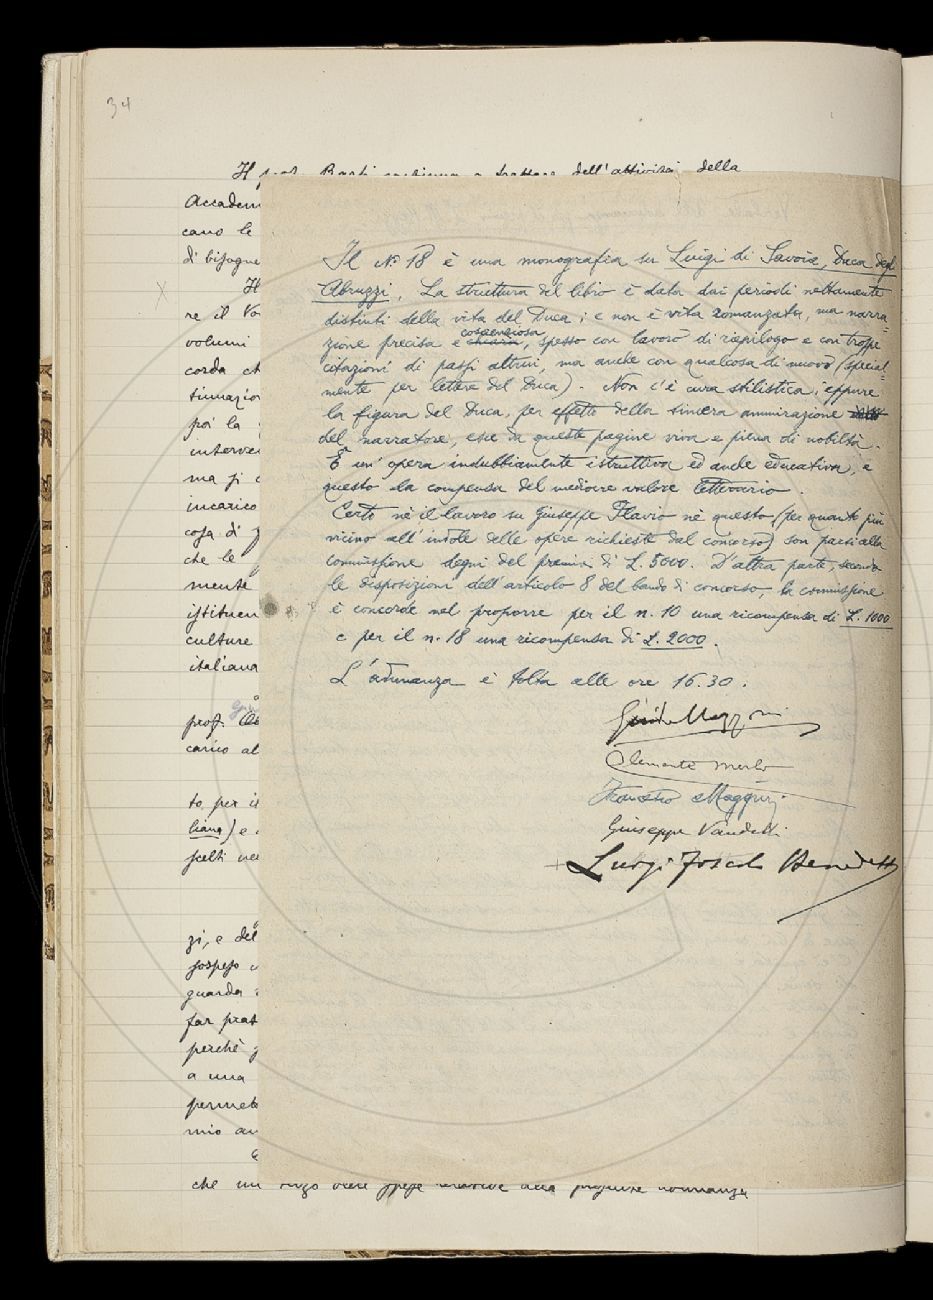 34
Il prof. dell'attività della
Accadem
cano le
di bisogne
re il Vo
volumi
corda ch
poi la
interve
ma si
incarico
cosa di
che le
mente
istituen
culture
italiana
prof.
carico al
to, per i
liana) e
scelti ne
zi, e del
sospeso
guarda
far prat
perchè
a una
permet
mio au
che un
Il No 18 è una monografia su Luigi di Savoia, Duca degli
Abruzzi. La struttura del libro è data dai periodi nettamente
distinti della vita del Duca; e non è vita romanzata, ma narra-
zione precisa e chiara coscenziosa, spesso con lavoro di riepilogo e con troppe
citazioni di passi altrui, ma anche con qualcosa di nuovo (special-
mente per lettere del Duca). Non c'è cura stilistica; eppure
la figura del Duca, per effetto della sincera ammirazione
del narratore, esce da queste pagine viva e piena di nobiltà.
È un'opera indubbiamente istruttiva ed anche educativa, e
questo la compensa del mediocre valore letterario.
Certo nè il lavoro su Giuseppe Flavio nè questo (per quanto più
vicino all'indole delle opere richieste dal concorso) son parsi alla
commissione degni del premio di L. 5000. D'altra parte, secondo
le disposizioni dell'articolo 8 del bando di concorso, la commissione
è concorde nel proporre per il n. 10 una ricompensa di L. 1000
e per il n. 18 una ricompensa di L. 2000.
L'adunanza è tolta alle ore 16.30.
Guido Mazzoni
Clemente Merlo
Francesco Maggini
Giuseppe Vandelli
+ Luigi Foscolo Benedetto